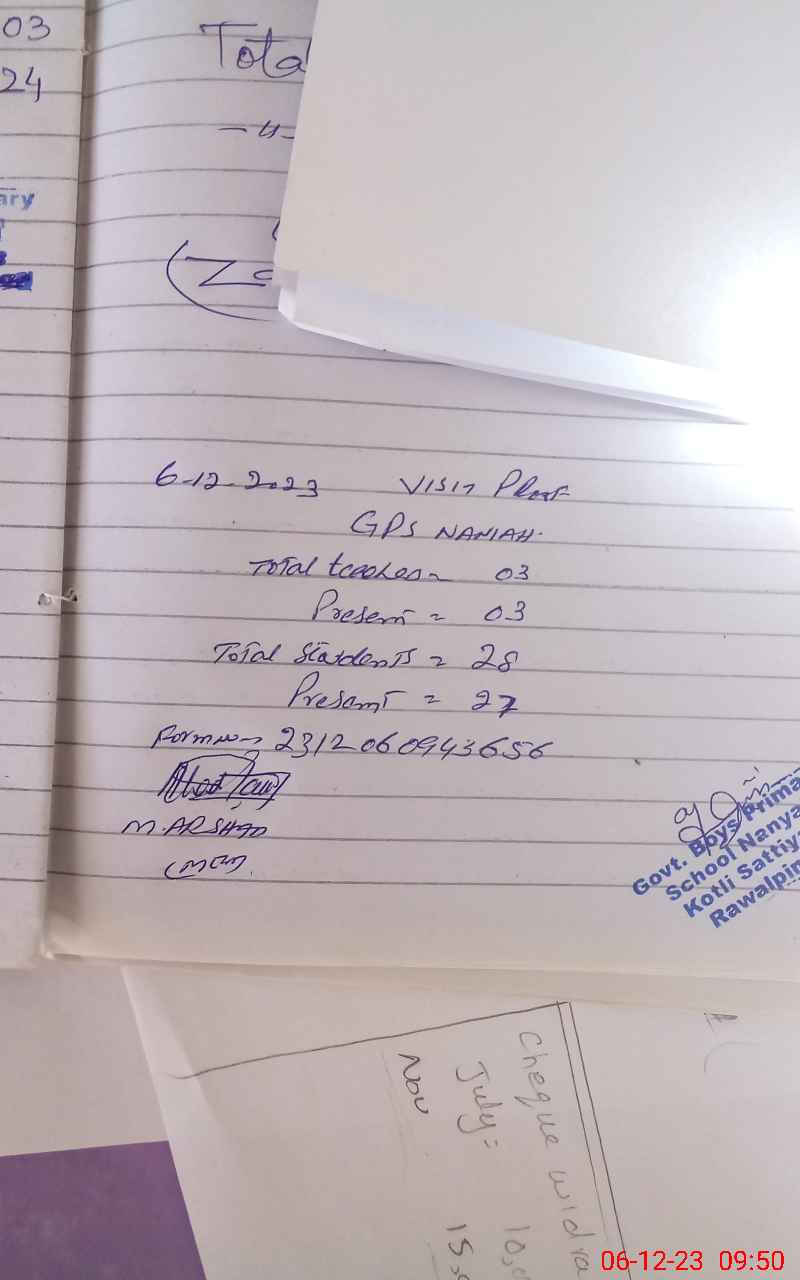 03
24
ary
Tota
-11-
6-12-2023 VISIT PROOF
GPS NANIAH.
Total teachers = 03
Present = 03
Total Students = 28
Present = 27
Form no = 2312060943656
M. ARSHAD
Govt. Boys Prima
School Nanya
Kotli Sattiy
Rawalpin
Cheque widra
July = 10,0
Nov 15,0
06-12-23 09:50